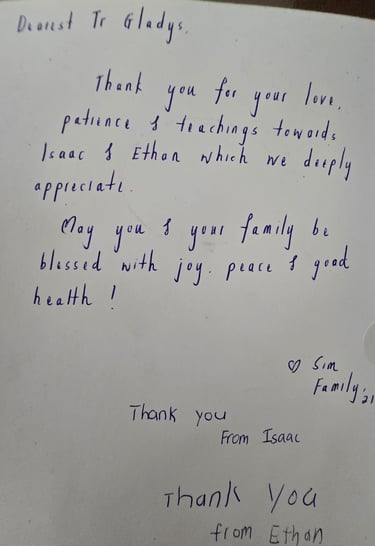 Dearest Tr Gladys,
Thank you for your love,
patience & teachings towards
Isaac & Ethan which we deeply
appreciate.
May you & your family be
blessed with joy, peace & good
health !
♡ Sim
Family, '21
Thank you
From Isaac
Thank you
from Ethan